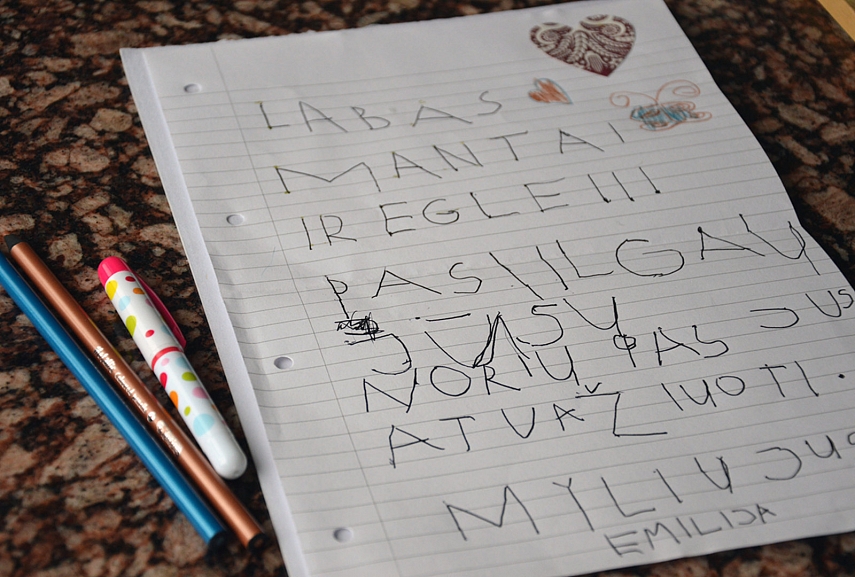 LABAS
MANTAI
IR EGLE III
PASIILGAU
JŪSŲ
NORIU PAS JUS
ATVAŽIUOTI.
MYLIU JUS
EMILIJA